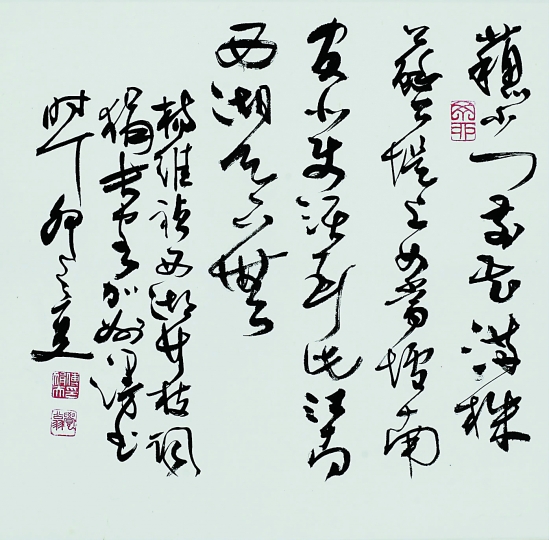 蘇小门前花滿株
蘇公堤上女當壚南
官北使須到此江南
西湖天下無
楊維禎西湖竹枝詞
加州
時丁卯之夏